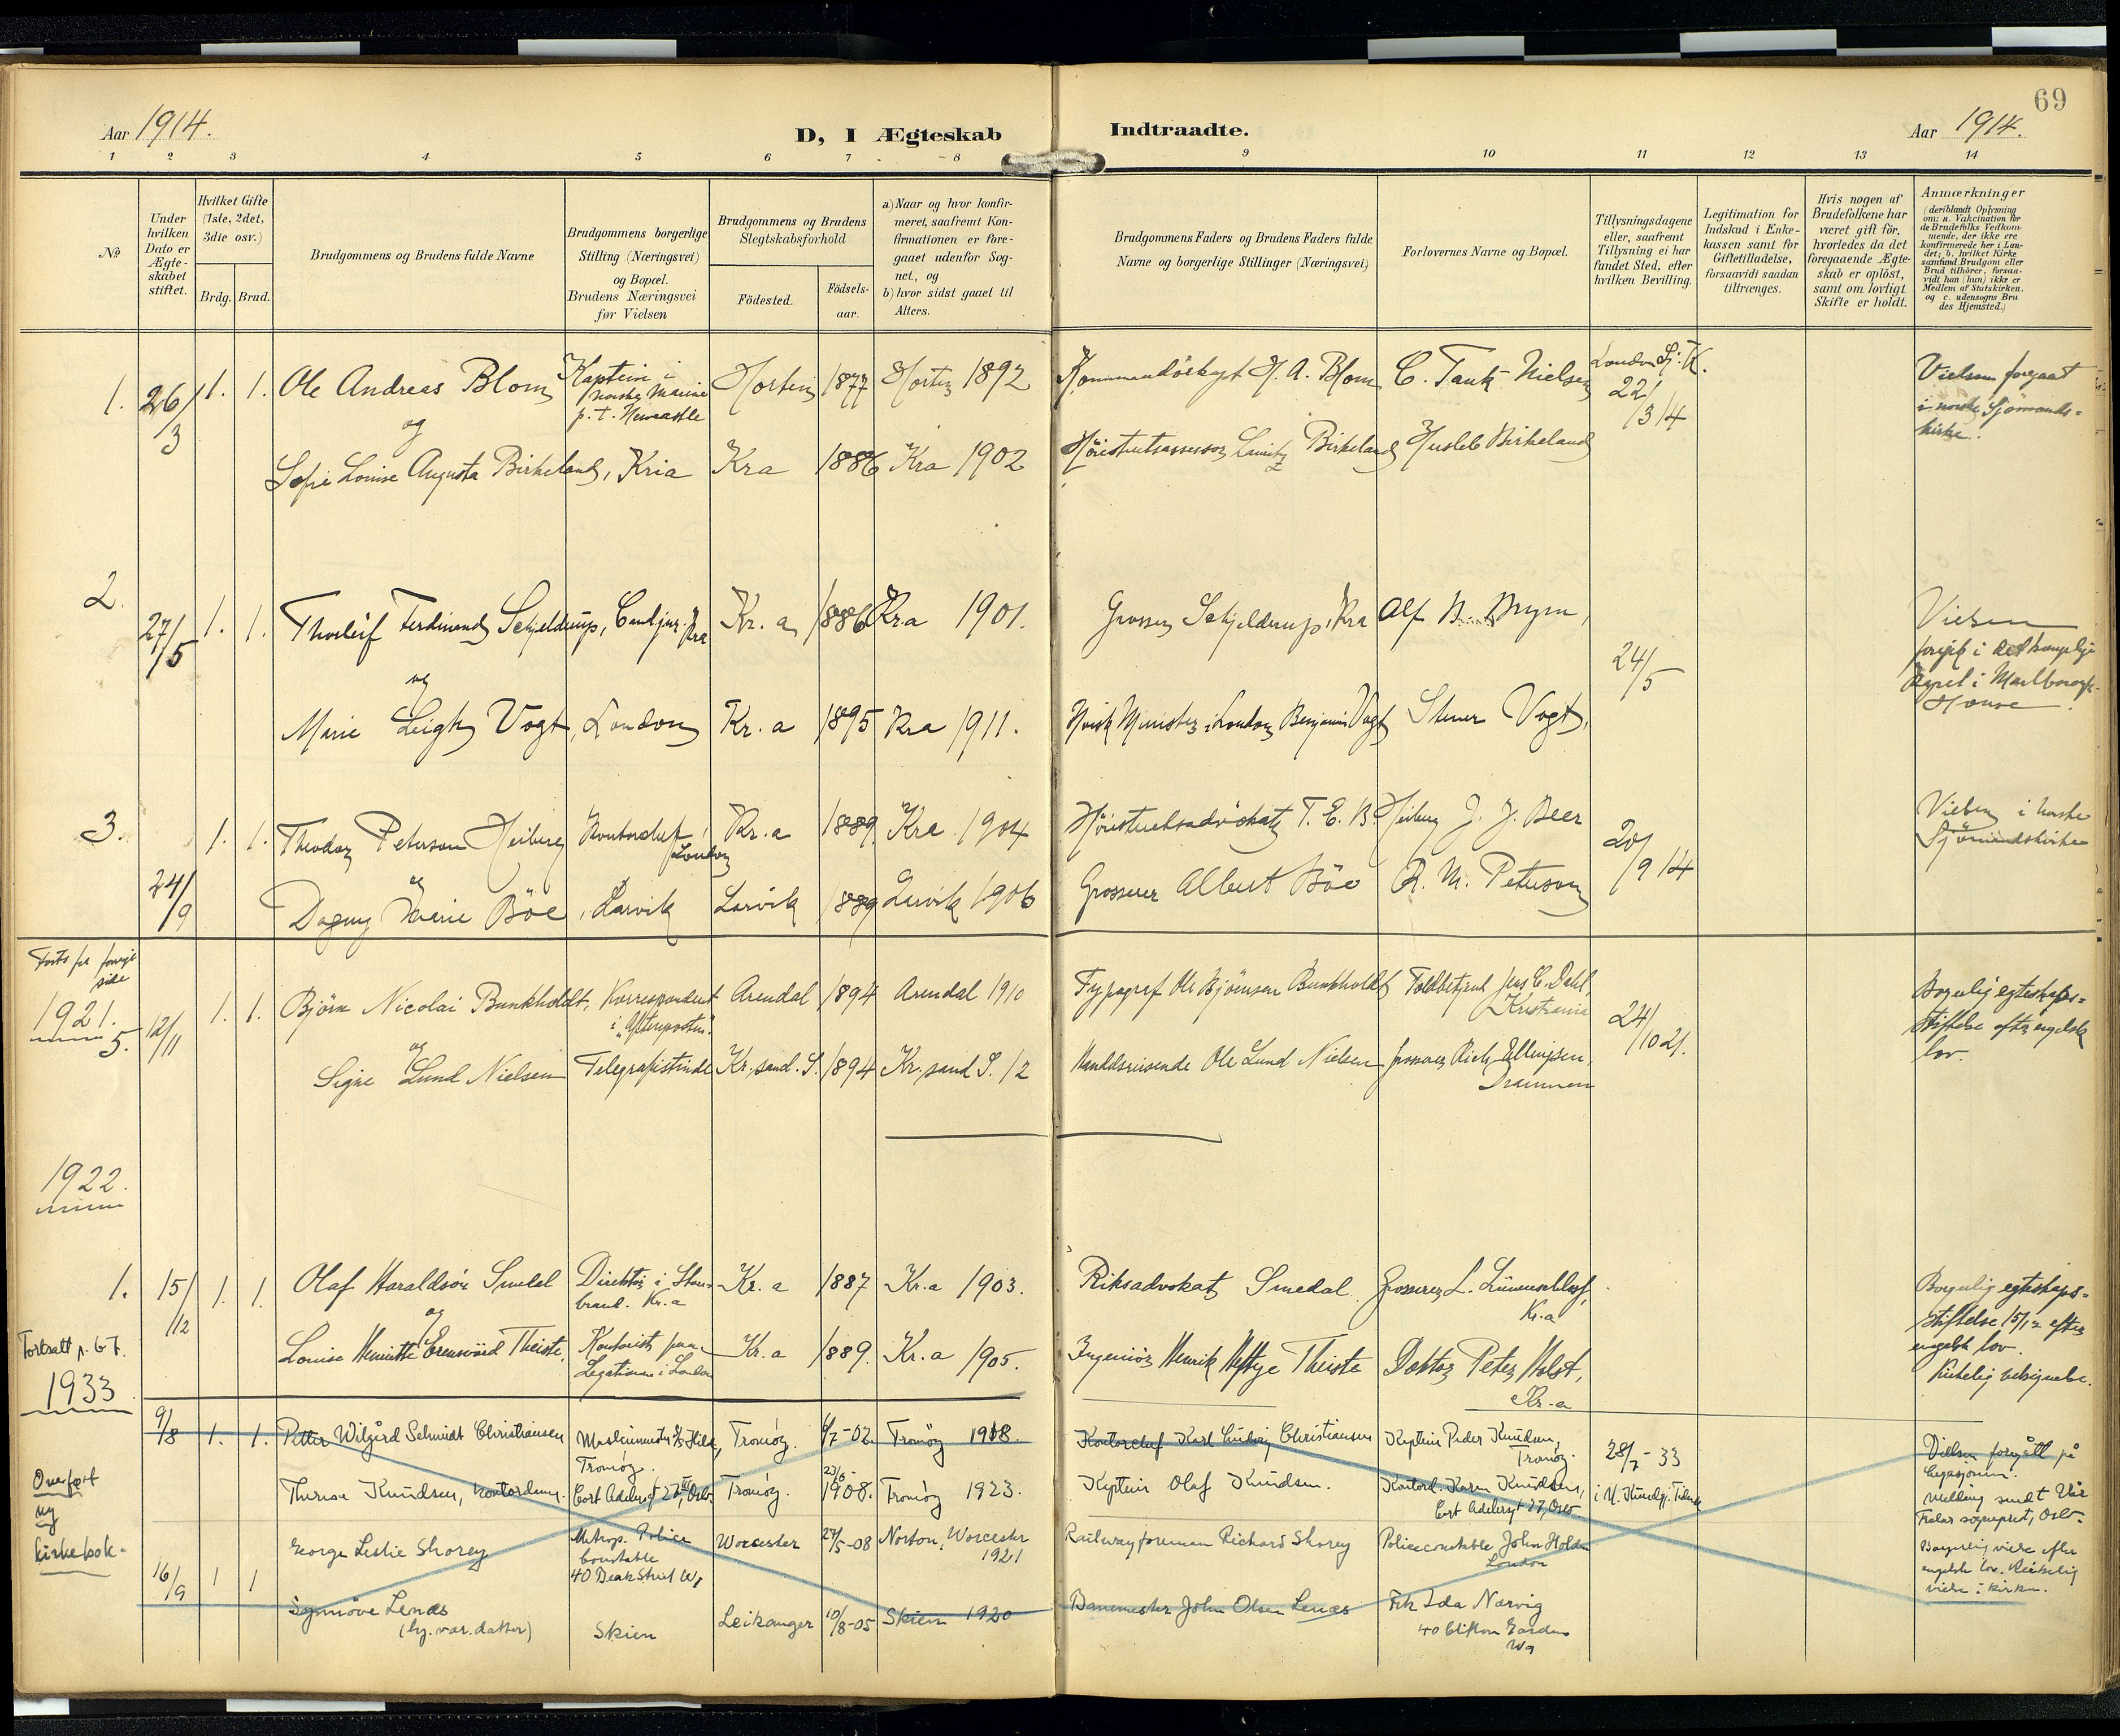 69
Aar 1914.
D, I Ægteskab Indtraadte.
Aar 1914.
1 2 3 4 5 6 7 8 9 10 11 12 13 14
No
Under hvilken Dato er Ægteskabet stiftet.
Hvilket Gifte (1ste, 2det, 3die osv.)
Brdg. Brud.
Brudgommens og Brudens fulde Navne
Brudgommens borgerlige Stilling (Næringsvei) og Bopæl. Brudens Næringsvei før Vielsen
Brudgommens og Brudens Slegtskabsforhold
Födested.
Födsels-aar.
a) Naar og hvor konfirmeret, saafremt Konfirmationen er foregaaet udenfor Sognet, og
b) hvor sidst gaaet til Alters.
Brudgommens Faders og Brudens Faders fulde Navne og borgerlige Stillinger (Næringsvei)
Forlovernes Navne og Bopæl.
Tillysningsdagene eller, saafremt Tillysning ei har fundet Sted, efter hvilken Bevilling.
Legitimation for Indskud i Enkekassen samt for Giftetilladelse, forsaavidt saadan tiltrænges.
Hvis nogen af Brudefolkene har været gift för, hvorledes da det foregaaende Ægteskab er oplöst, samt om lovligt Skifte er holdt.
Anmærkninger
(deriblandt Oplysning om: a. Vakcination for de Brudefolks Vedkommende, der ikke ere konfirmerede her i Landet; b. hvilket Kirkesamfund Brudgom eller Brud tilhörer, forsaavidt han (hun) ikke er Medlem af Statskirken. og c. udensogns Brudes Hjemsted.)
1. 26/3 1. 1. Ole Andreas Blom Kaptein i norske Marine p. t. Newcastle Horten 1877 Horten 1892 Kommandörkapt H. A. Blom C. Tank Nielsen London Sj. K. 22/3 14 Vielsen foregaat i norske Sjömandskirke.
og
Sofie Louise Augusta Birkeland, Kria Kra 1886 Kra 1902 Höiesteretsassessor Birkeland Birkeland
2. 27/5 1. 1. Thorleif Ferdinand Schjelderup, Cand jur. Kra Kr. a 1886 Kra 1901. Grosser Schjelderup, Kra Alf B. Bryn, 24/5 Vielsen foregik i det kongelige Kapel i Marlborough House.
og
Marie Leigh Vogt, London Kr. a 1895 Kra 1911. Norsk Minister i London Benjamin Vogt Vogt,
3. 24/9 1. 1. Theodor Peterson Heiberg Kontorchef, London Kr. a 1889 Kra 1904 Höiesteretsadvokat T. E. B. Heiberg J. J. Beer 20/9 14 Vielsen i norske Sjömandskirke
og
Dagny Marie Böe, Larvik Larvik 1889 Larvik 1906 Grosserer Albert Böe R. M. Peterson
Forts fra forrige side
1921.
5. 12/11 1. 1. Björn Nicolai Bunkholdt, Korrespondent i "Aftenposten". Arendal 1894 Arendal 1910 Typograf Ole Björnsen Bunkholdt Toldbetjent Jens C. Dahl, Kristiania 24/10 21. Borgerlig egteskapsstiftelse efter engelsk lov.
og
Signe Lund Nielsen Telegrafistinde Kr. sand. S. 1894 Kr. sand S. 12 Handelsreisende Ole Lund Nielsen grosserer Rich. Ellingsen, Drammen
1922.
1. 15/12 1. 1. Olaf Haraldsön Smedal Direktör i Storebrand. Kr.a Kr. a 1887 Kr.a 1903. Riksadvokat Smedal Grosserer L. Kr.a Borgerlig egteskapsstiftelse 15/12 efter engelsk lov. Kirkelig velsignelse.
og
Louise Henriette Theiste, Kontorist paa Legationen i London Kr. a 1889. Kr. a 1905. Ingeniör Henrik Heftye Theiste Doktor Peter Holst, Kr.a
Fortsatt p. 67.
1933
9/8 1. 1. Petter Wilgård Schmidt Christiansen Maskinmester Tromöy. Tromöy. 6/7-02 Tromöy 1918. Kontorchef Karl Ludvig Christiansen Kaptein Peder Knudsen, Tromöy. 28/7-33 Vielsen foregått på legasjonen.
Therese Knudsen, kontordame. Cort Adelersgt 27, Oslo. Tromöy. 23/6-1908. Tromöy 1923. Kaptein Olaf Knudsen. Kontord. Karen Knudsen, Cort Adelersgt 27, Oslo. i N. Kundgj. Tidende Melding sendt Vår Frelsers sogneprest, Oslo.
Overført ny kirkebok.
16/9 1 1 George Leslie Shorey Metrop. Police Constable 40 Beak Street W1 Worcester 27/5-08 Norton, Worcester 1921 Railwayforeman Richard Shorey Policeconstable John Holden London Borgerlig viede efter engelsk lov. Kirkelig viede i kirken.
Synnöve Lenæs Skien Leikanger 10/8-05 Skien 1920 Banemester John Olsen Lenæs Frk Ida Narvig 40 Clifton Gardens W9